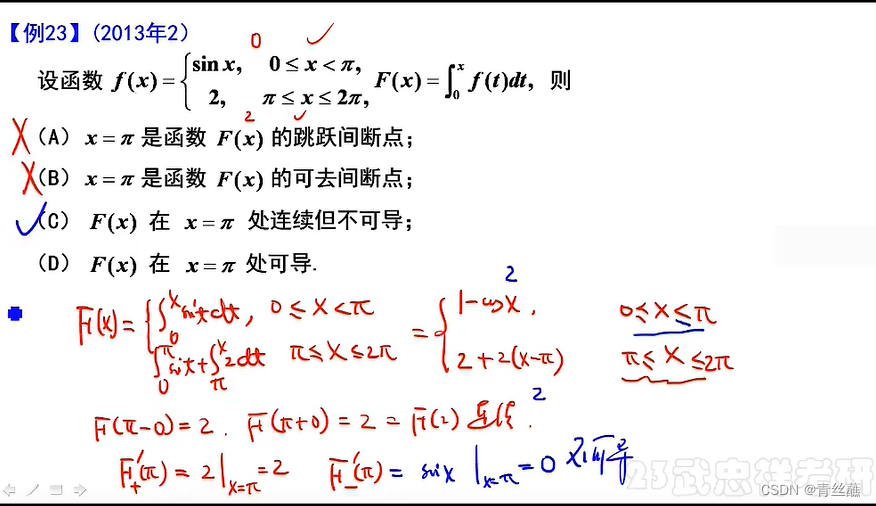 【例23】(2013年2)
0
设函数 f(x) = { sin x, 0 ≤ x < π, 2, π ≤ x ≤ 2π, F(x) = ∫₀ˣ f(t)dt, 则
2
(A) x = π 是函数 F(x) 的跳跃间断点;
(B) x = π 是函数 F(x) 的可去间断点;
(C) F(x) 在 x = π 处连续但不可导;
(D) F(x) 在 x = π 处可导.
2
F(x) = { ∫₀ˣ sin t dt, 0 ≤ x < π = { 1 - cos x, 0 ≤ x ≤ π
∫₀^π sin t + ∫_π^x 2dt π ≤ x ≤ 2π 2 + 2(x-π) π ≤ x ≤ 2π
2
F(π-0) = 2. F(π+0) = 2 = F(2) 连续.
F₊'(π) = 2|ₓ₌π = 2 F₋'(π) = sin x |ₓ₌π = 0 不可导
23武忠祥考研
CSDN @青丝蘸